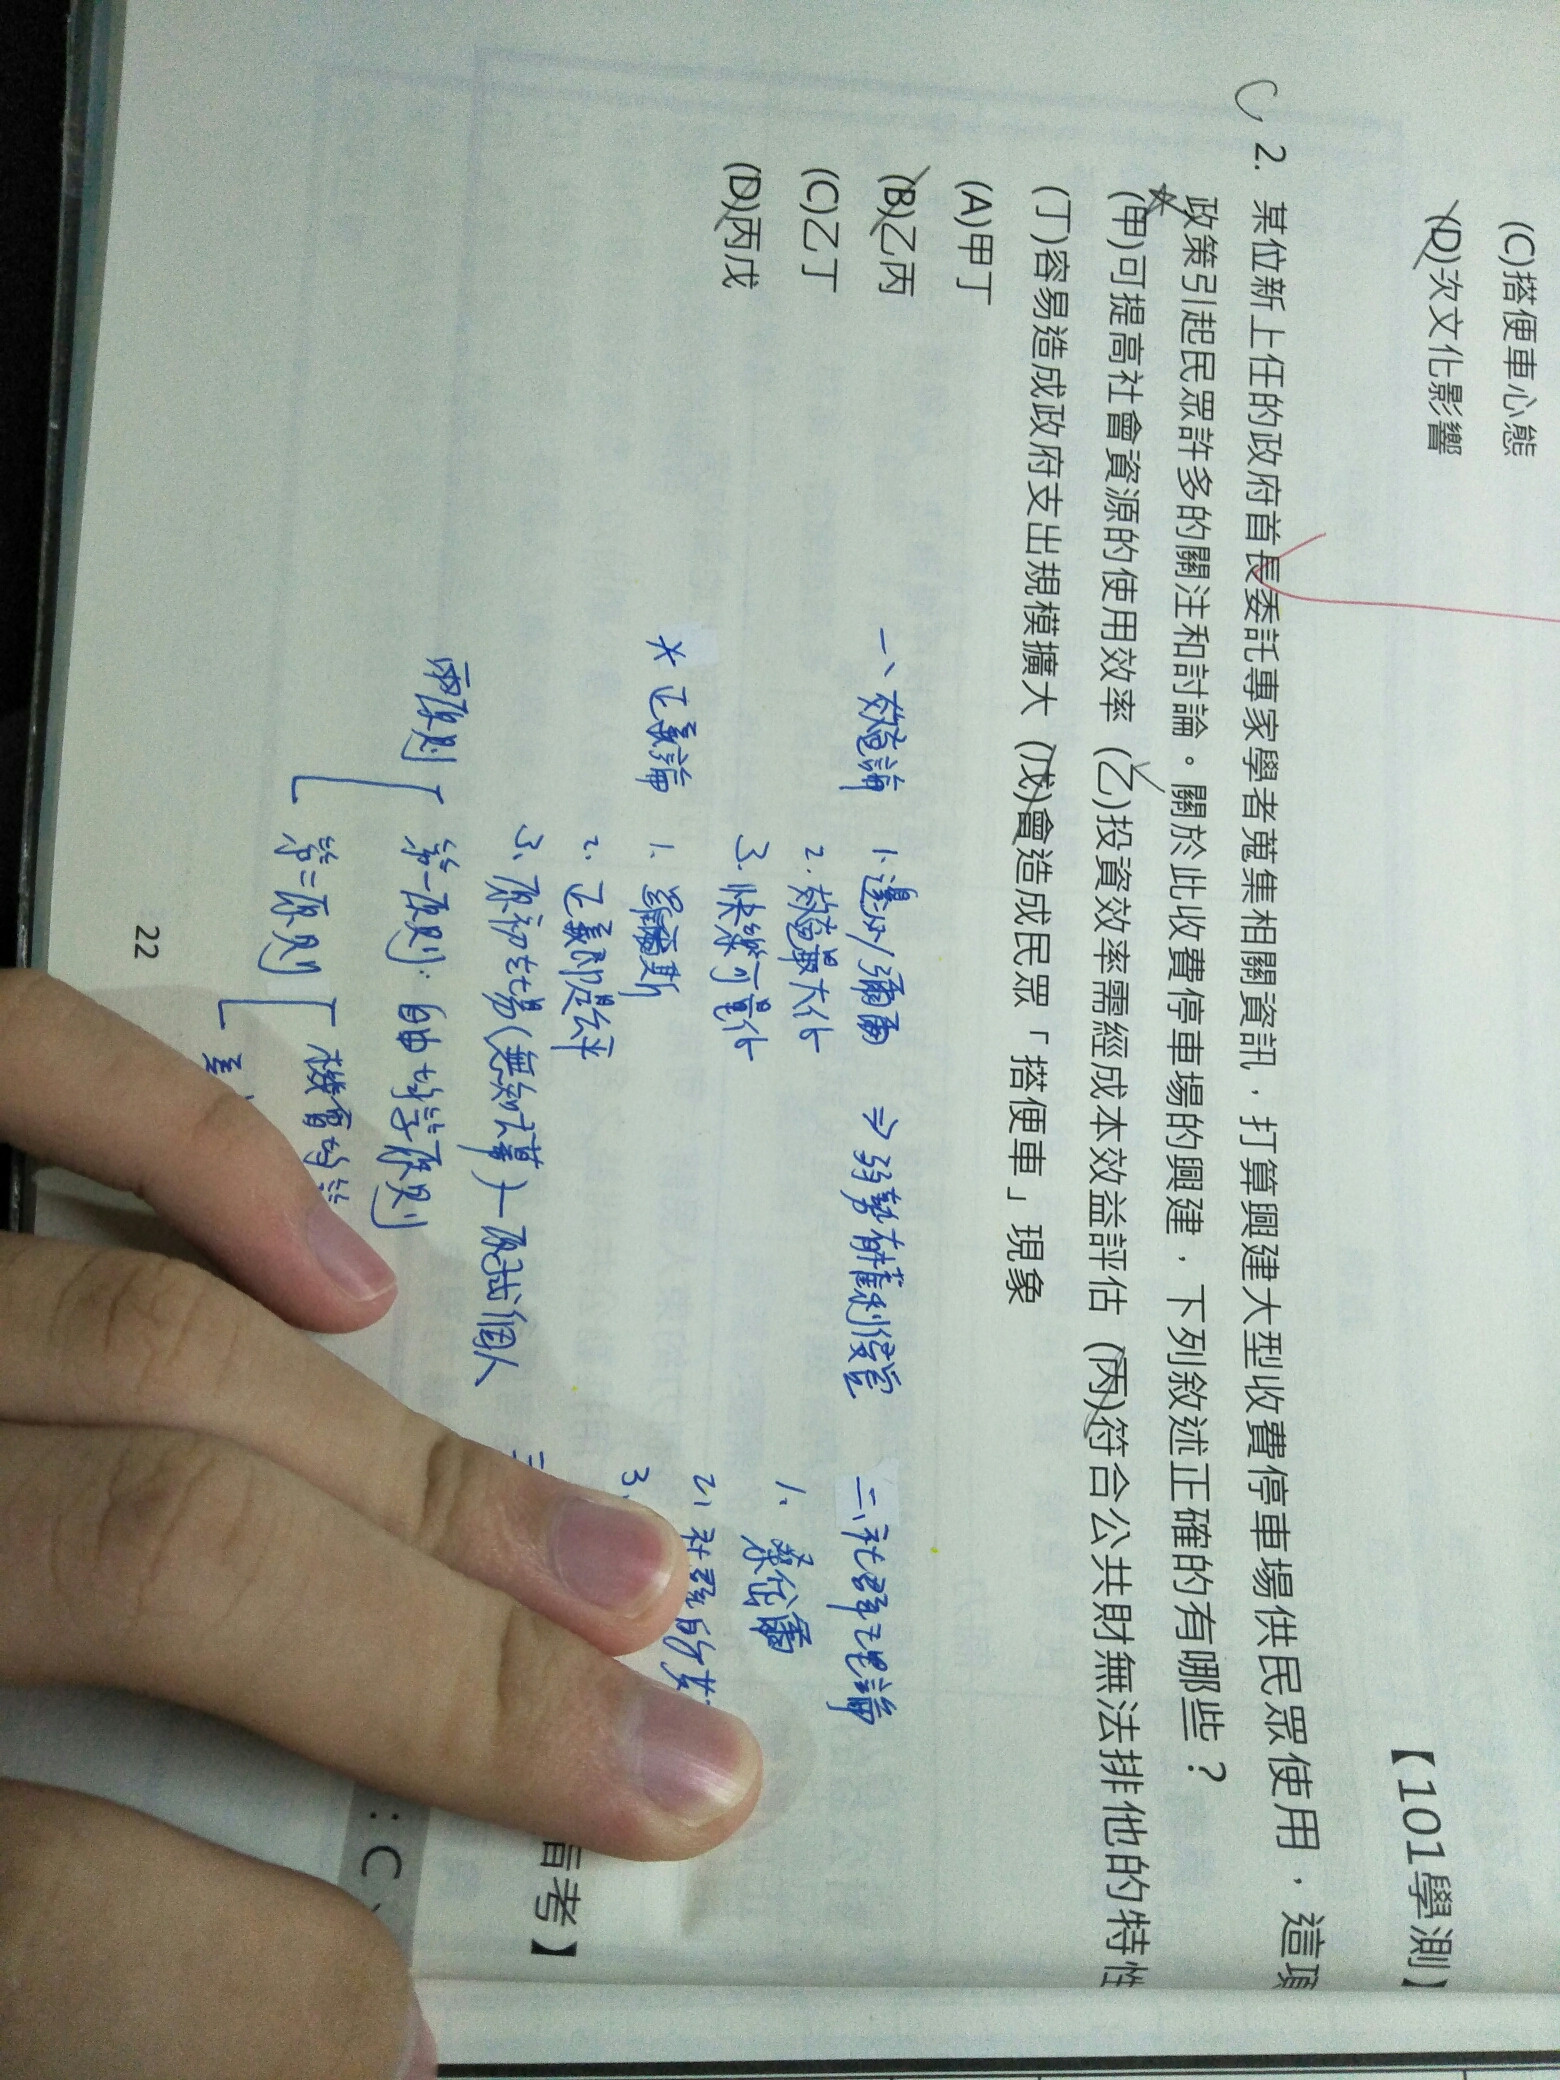 (C)搭便車心態
(D)次文化影響
【101學測】
C, 2. 某位新上任的政府首長委託專家學者蒐集相關資訊，打算興建大型收費停車場供民眾使用，這項
政策引起民眾許多的關注和討論。關於此收費停車場的興建，下列敘述正確的有哪些？
(甲)可提高社會資源的使用效率 (乙)投資效率需經成本效益評估 (丙)符合公共財無法排他的特性
(丁)容易造成政府支出規模擴大 (戊)會造成民眾「搭便車」現象
(A)甲丁
(B)乙丙
(C)乙丁
(D)丙戊
一、效益論 1.邊沁/彌爾 ⇒弱勢有才藝利優當
2.效益最大化
3.快樂可量化
* 正義論 1. 羅爾斯
2. 正義即是公平
3. 原初立場(無知之幕)—
兩原則 第一原則：自由均等原則
第二原則 機會均等
差
二、社群主義論
1. 桑德爾
2. 社群的
3.
指考】
: C
22